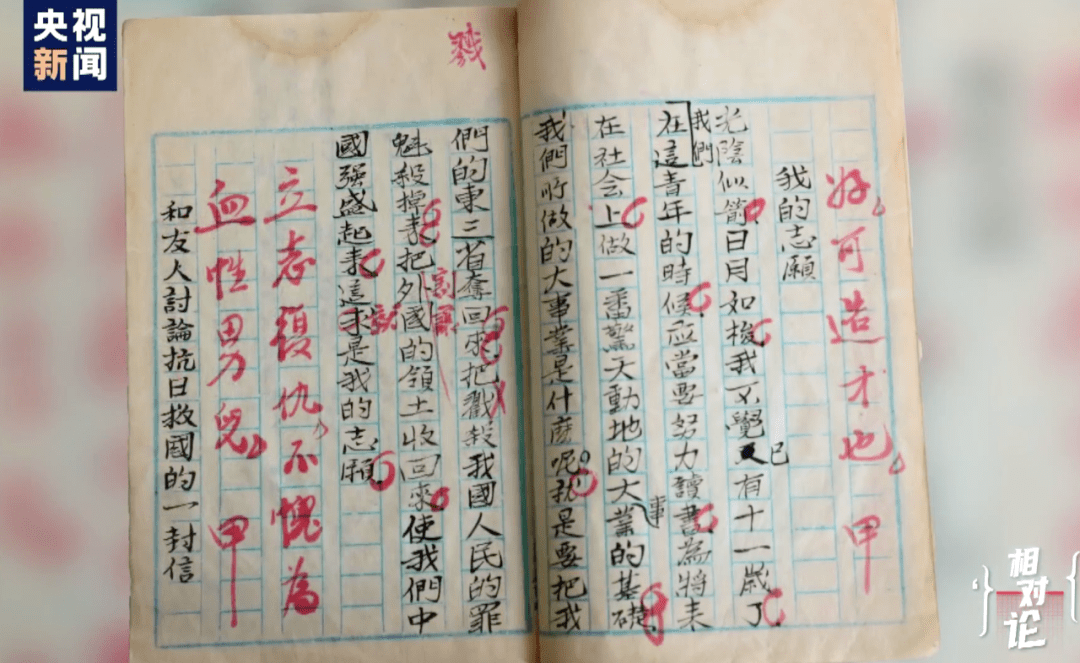 央视
新闻
好可造才也 甲
我的志願
光陰似箭日月如梭我不覺已有十一歲了
我們
在這青年的時候应當要努力讀書為將来
在社会上做一番驚天動地的大事業的基礎
我們所做的大事業是什麽呢我是要把我
戮
們的東三省奪回来把戳殺我國人民的罪
魁殺掉来把外國的領土收回來使我們中
割讓
國强盛起来這求是我的志願
立志復仇不愧為
血性男兒 甲
和友人討論抗日救國的一封信
相对论